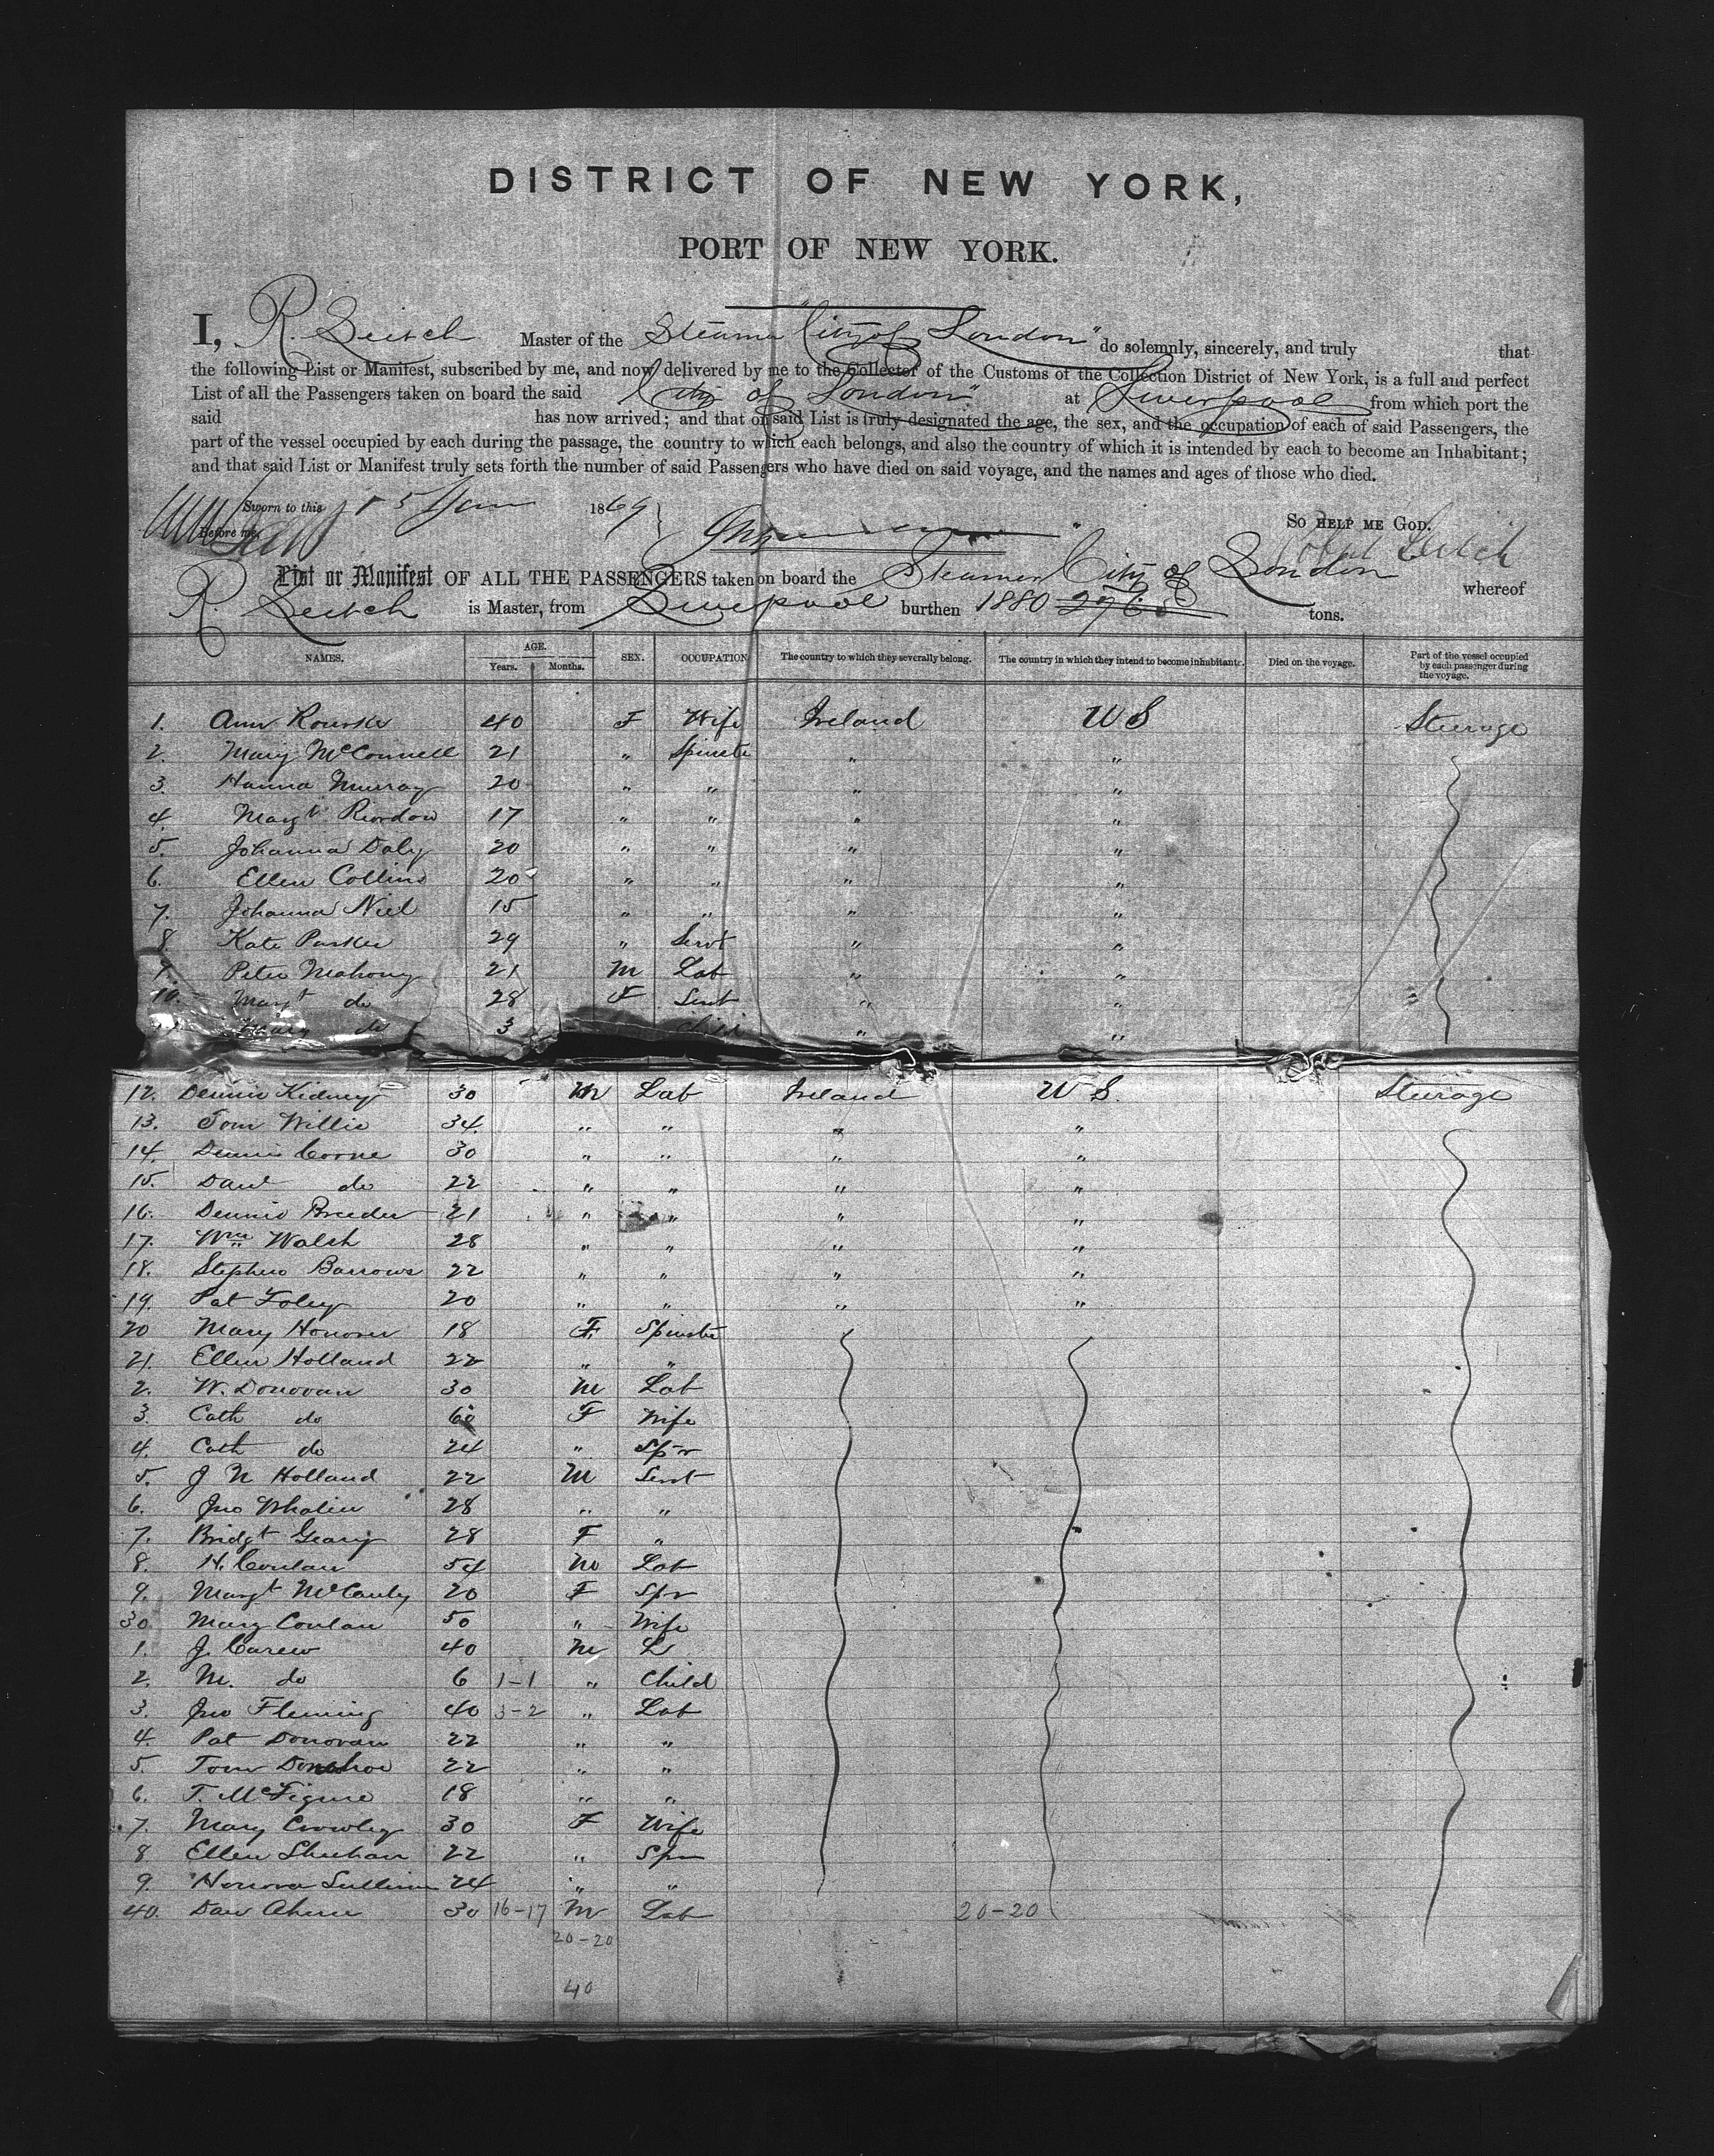 DISTRICT OF NEW YORK,
PORT OF NEW YORK.
I, R. Leitch Master of the Steamer "City of London" do solemnly, sincerely, and truly that
the following List or Manifest, subscribed by me, and now delivered by me to the Collector of the Customs of the Collection District of New York, is a full and perfect
List of all the Passengers taken on board the said City of London at Liverpool from which port the
said has now arrived; and that on said List is truly designated the age, the sex, and the occupation of each of said Passengers, the
part of the vessel occupied by each during the passage, the country to which each belongs, and also the country of which it is intended by each to become an Inhabitant;
and that said List or Manifest truly sets forth the number of said Passengers who have died on said voyage, and the names and ages of those who died.
Sworn to this 15 Jan 1869
Before me,
So HELP ME GOD.
Robert Leitch
List or Manifest OF ALL THE PASSENGERS taken on board the Steamer City of London whereof
R. Leitch is Master, from Liverpool burthen 1880 tons.
NAMES. AGE. Years. Months. SEX. OCCUPATION The country to which they severally belong. The country in which they intend to become inhabitants. Died on the voyage. Part of the vessel occupied by each passenger during the voyage.
1. Ann Rourke 40 F Wife Ireland U S Steerage
2. Mary McConnell 21 " Spinster " "
3. Hanna Murray 20 " " " "
4. Margt Riordon 17 " " " "
5. Johanna Daly 20 " " " "
6. Ellen Collins 20 " " " "
7. Johanna Niel 15 " " " "
8. Kate Parker 29 " Servt " "
9. Peter Mahony 21 M Lab " "
10. Margt do 28 F Servt " "
Mary do 3 Child " "
12. Dennis Kidney 30 M Lab Ireland U S. Steerage
13. Tom Willis 34 " " " "
14. Dennis Corne 30 " " " "
15. Danl do 22 " " " "
16. Dennis Breeder 21 " " " "
17. Wm Walsh 28 " " " "
18. Stephen Barrows 22 " " " "
19. Pat Foley 20 " " " "
20 Mary Honover 18 F. Spinster
21. Ellen Holland 22 " "
2. W. Donovan 30 M Lab
3. Cath do 60 F Wife
4. Cath do 24 " Spr
5. J N Holland 22 M Servt
6. Jno Whalen 28 " "
7. Bridgt Geary 28 F "
8. H. Conlan 54 M Lab
9. Margt McCauly 20 F Spr
30. Mary Conlan 50 " Wife
1. J. Carew 40 M L
2. M. do 6 1-1 " Child
3. Jno Fleming 40 3-2 " Lab
4. Pat Donovan 22 " "
5. Tom Donohoe 22 " "
6. T. McFigure 18 " "
7. Mary Crowley 30 F Wife
8 Ellen Sheehan 22 " Spr
9. Honora Sullivan 24 " "
40. Dan Ahern 30 16-17 M Lab 20-20
20-20
40